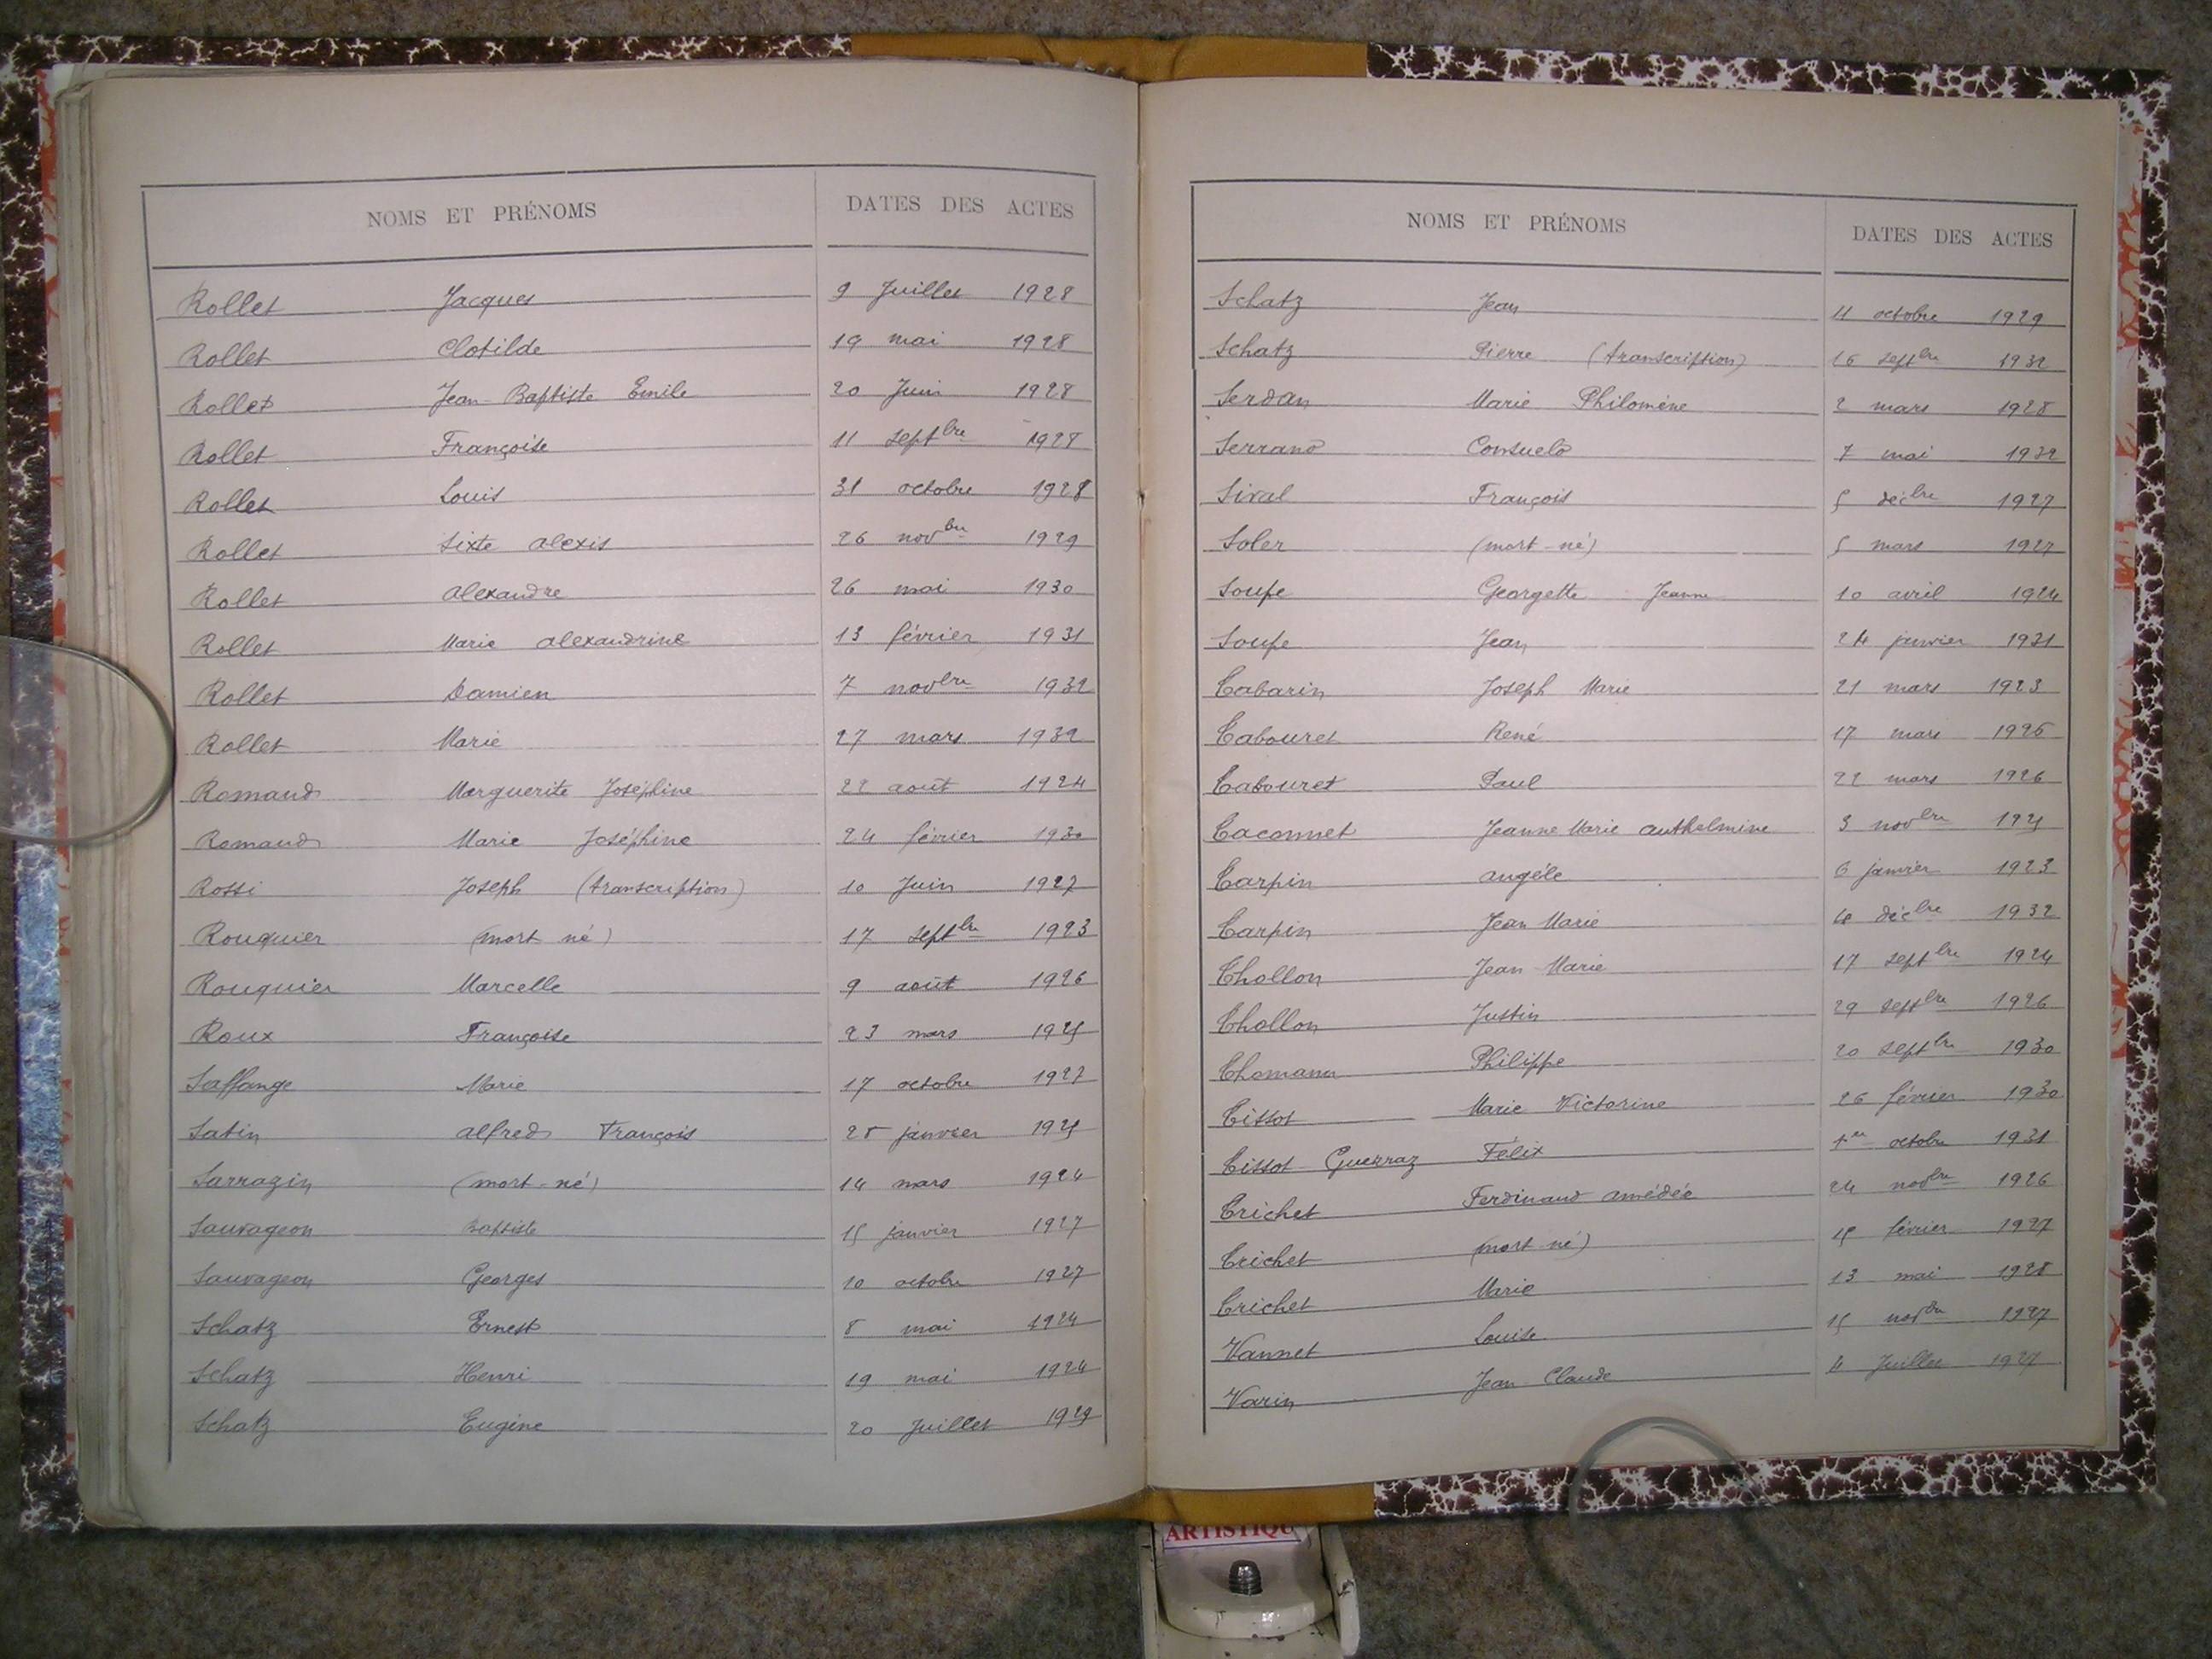 NOMS ET PRÉNOMS DATES DES ACTES
Rollet Jacques 9 Juillet 1928
Rollet Clotilde 19 mai 1928
Rollet Jean-Baptiste Emile 20 Juin 1928
Rollet Françoise 11 septbre 1928
Rollet Louis 31 octobre 1928
Rollet Sixte Alexis 26 novbre 1929
Rollet Alexandre 26 mai 1930
Rollet Marie Alexandrine 13 février 1931
Rollet Damien 7 novbre 1932
Rollet Marie 27 mars 1932
Romand Marguerite Joséphine 22 août 1924
Romand Marie Joséphine 24 février 1930
Rossi Joseph (transcription) 10 Juin 1927
Rouquier (mort né) 17 septbre 1923
Rouquier Marcelle 9 août 1926
Roux Françoise 23 mars 1925
Saffange Marie 17 octobre 1927
Satin Alfred François 28 janvier 1925
Sarrazin (mort-né) 14 mars 1924
Sauvageon Baptiste 15 janvier 1927
Sauvageon Georges 10 octobre 1927
Schatz Ernest 8 mai 1924
Schatz Henri 19 mai 1924
Schatz Eugène 20 Juillet 1929
NOMS ET PRÉNOMS DATES DES ACTES
Schatz Jean 11 octobre 1929
Schatz Pierre (transcription) 16 septbre 1932
Serdan Marie Philomène 2 mars 1928
Serrano Consuelo 7 mai 1932
Sival François 5 décbre 1927
Soler (mort-né) 5 mars 1927
Soupe Georgette Jeanne 10 avril 1924
Soupe Jean 24 janvier 1931
Tabarin Joseph Marie 21 mars 1923
Tabouret René 17 mars 1926
Tabouret Paul 22 mars 1926
Taconnet Jeanne Marie Anthelmine 3 novbre 1925
Tarpin Angèle 6 janvier 1923
Tarpin Jean Marie décbre 1932
Thollon Jean-Marie 17 septbre 1924
Thollon Justin 29 septbre 1926
Thomann Philippe 20 septbre 1930
Tissot Marie Victorine 26 février 1930
Tissot-Guerraz Félix 1er octobre 1931
Trichet Ferdinand Amédée 24 novbre 1926
Trichet (mort-né) 15 février 1927
Trichet Marie 13 mai 1928
Vannet Louise 15 novbre 1927
Varin Jean-Claude Juillet 1927
ARTISTIQU